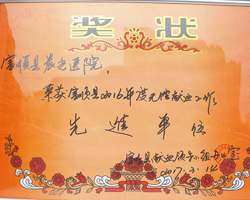 奖状
富顺县晨光医院，
荣获富顺县2016年度无偿献血工作
先进单位
富顺县献血领导小组办公室
2017.2.14